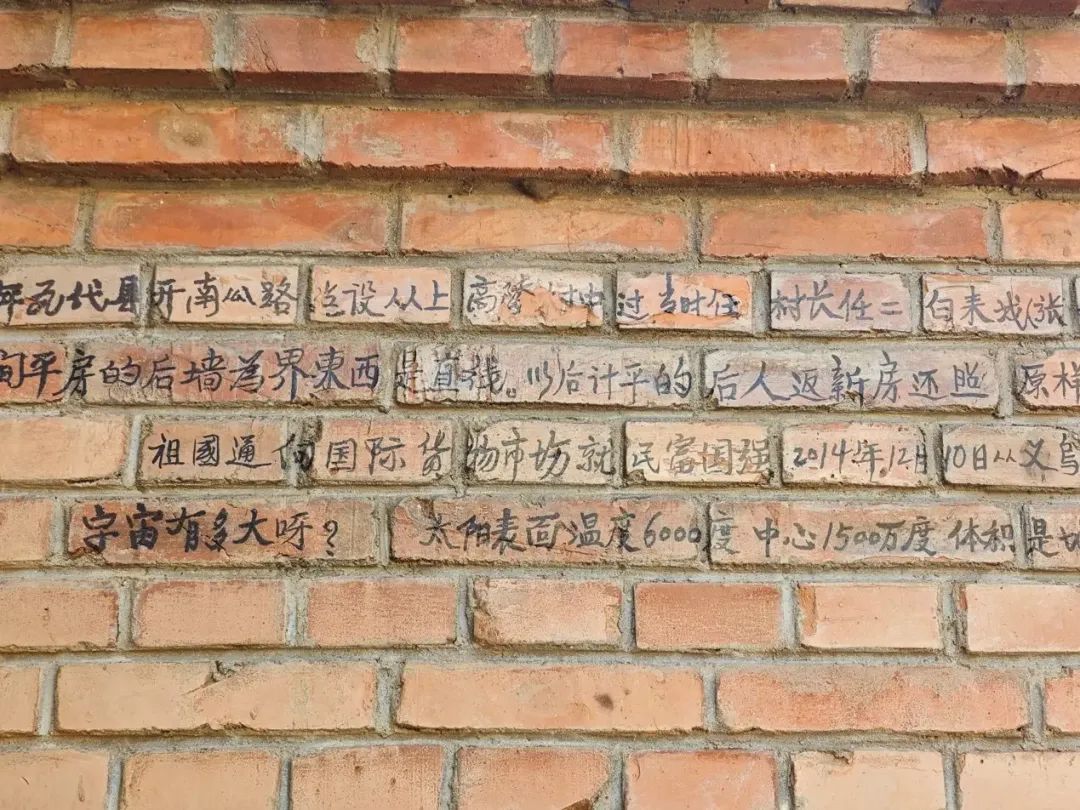 代县开南公路 设从上高 村中过 当时任村长任二白表戏(张
间平房的后墙为界東西是直线。以后计平的后人返新房还照原样
祖國通向国际货物市场就民富国强2014年12月10日从义乌
宇宙有多大呀?太阳表面温度6000度中心1500万度体积是